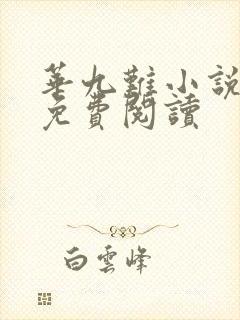 華九難小說
免費閱讀
白雲峰